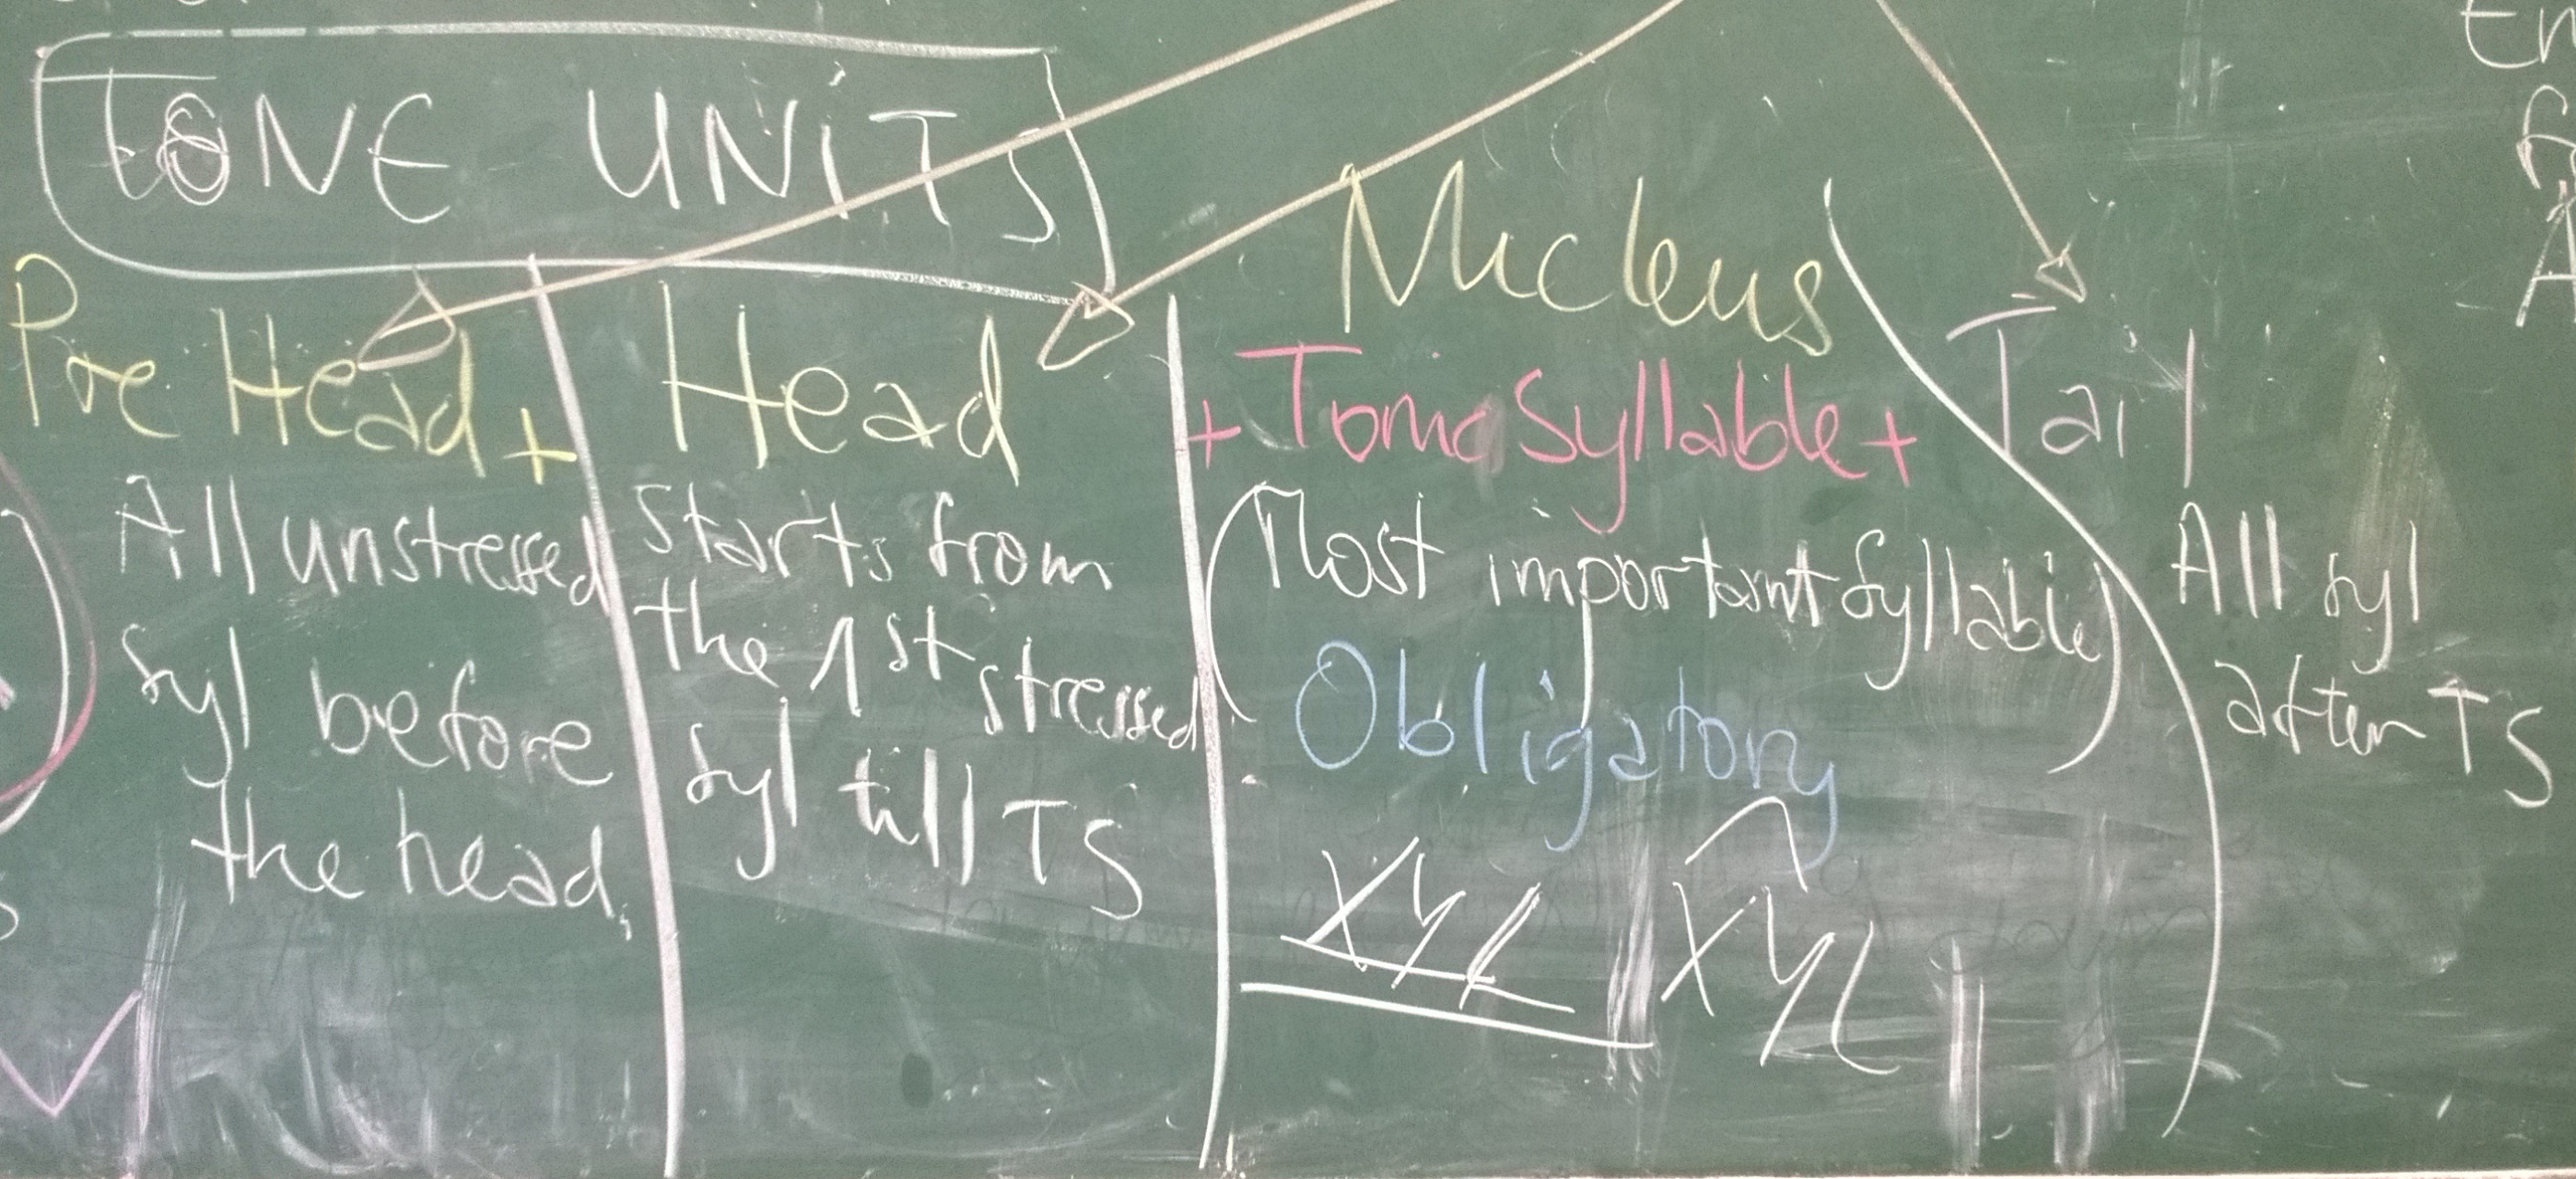 TONE UNiTS
Pre Head +
All unstressed
syl before
the head
Head
Starts from
the 1st stressed
syl till TS
Nucleus
+ Tonic Syllable +
(Most important syllable)
Obligatory
Tail
All syl
after TS
En